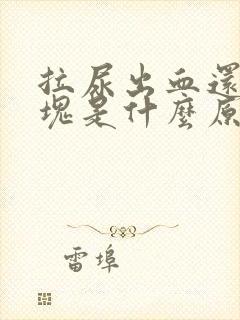 拉尿出血還
塊是什麼原
雷埠